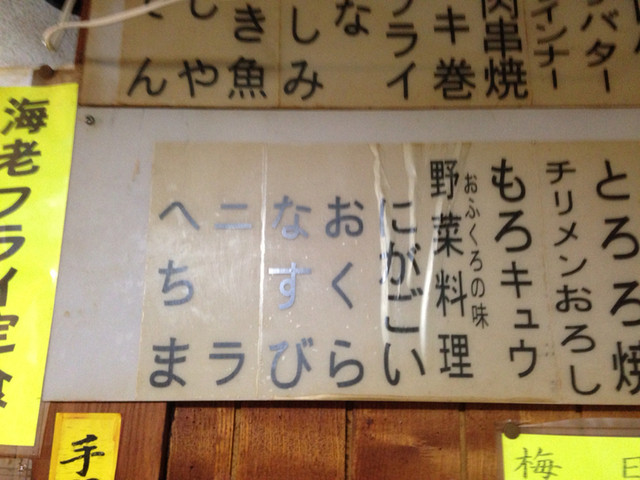 バター
インナー
肉串焼
キ巻
フライ
な
しみ
き魚
しや
ん
とろろ焼
チリメンおろし
もろキュウ
おふくろの味
野菜料理
にがごい
おくら
なすび
ニラ
へちま
海老フライ定食
梅
手